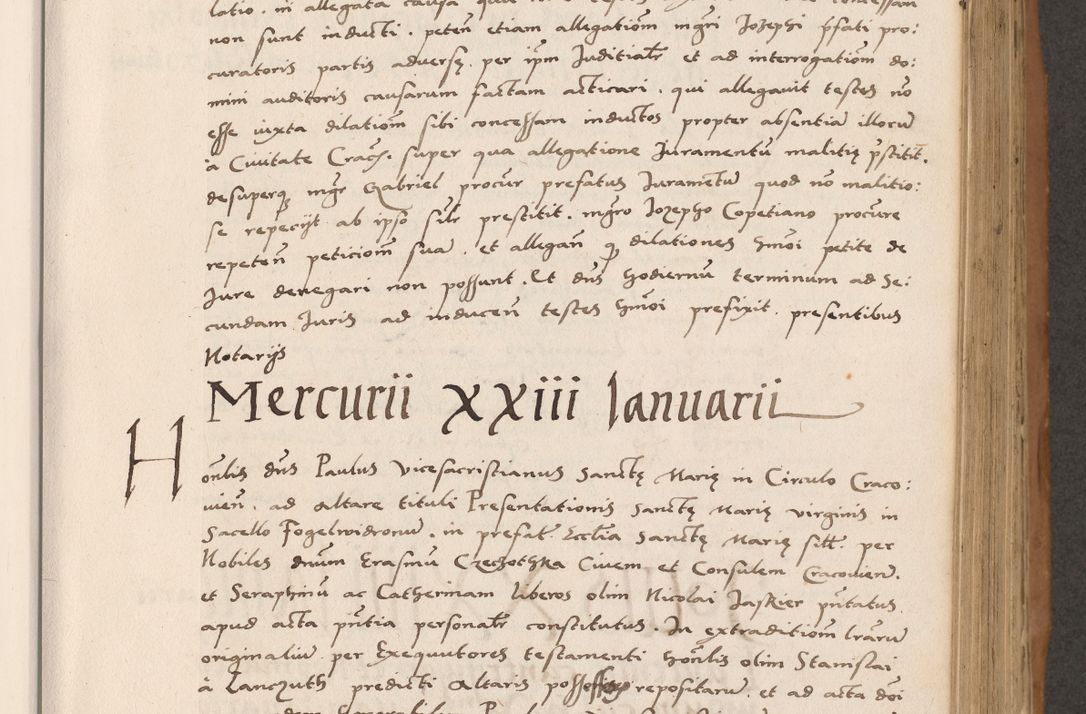 latio. in allegata causa
non sunt inducti. peteñ etiam allegationm̃ mgri Iozephi p̃fati pro:
curatoris partis adversę. per ip̃m Iuditialr̃ et ad interrogationm̃ do:
mini auditoris causarum factam acticari. qui allegavit testes nõ
esse iuxta dilationm̃ sibi concessam inductos propter absentiã illorũ
à Civitate Crac̃. super qua allegatione Iuramentũ malitię p̃stitit.
desuperq mgr̃ Gabriel procur̃ prefatus Iuramentũ quod nõ malitio:
se repecijt ab ipso silr̃ prestitit. mgro Iozepho Copetiano procure
repeteñ peticionm̃ suã. et allegañ q dilationes hmõi petite de
Iure denegari non possunt. Et dñs hodiernũ terminum ad Se:
cundam Iuris ad induceñ testes hmõi prefixit. presentibus
Notarijs
Mercurii XXIII Ianuarii
Honlis dñs Paulus vicesacristianus Sanctę Marię in Circulo Craco:
vieñ. ad altare tituli Presentationis Sanctę Marię virginis in
Sacello Fogelwidronũ. in prefat. Ecclia Sanctę Marię sitt. per
Nobiles dnum Erasmũ Czeczothka Civem et Consulem Cracovieñ.
et Seraphinũ ac Catherinam liberos olim Nicolai Jaskier pñtatus
apud acta pñtia personalr̃ constitutus. In extraditionm̃ lrarũ
originaliũ per Exequutores testamenti honlis olim Stanislai
à Lanczuth predicti Altaris possessoris repositarũ. et ad acta dõi